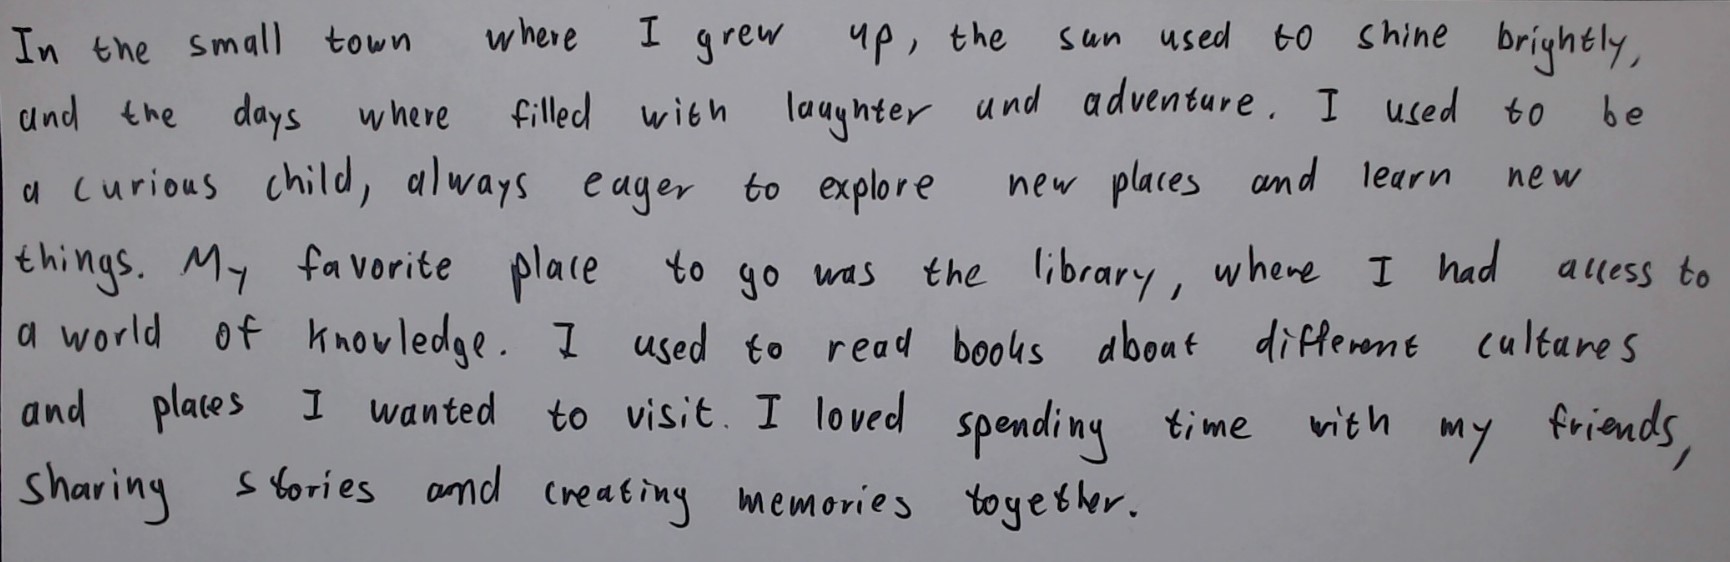 In the small town where I grew up, the sun used to shine brightly,
and the days where filled with laughter and adventure. I used to be
a curious child, always eager to explore new places and learn new
things. My favorite place to go was the library, where I had access to
a world of knowledge. I used to read books about different cultures
and places I wanted to visit. I loved spending time with my friends,
sharing stories and creating memories together.